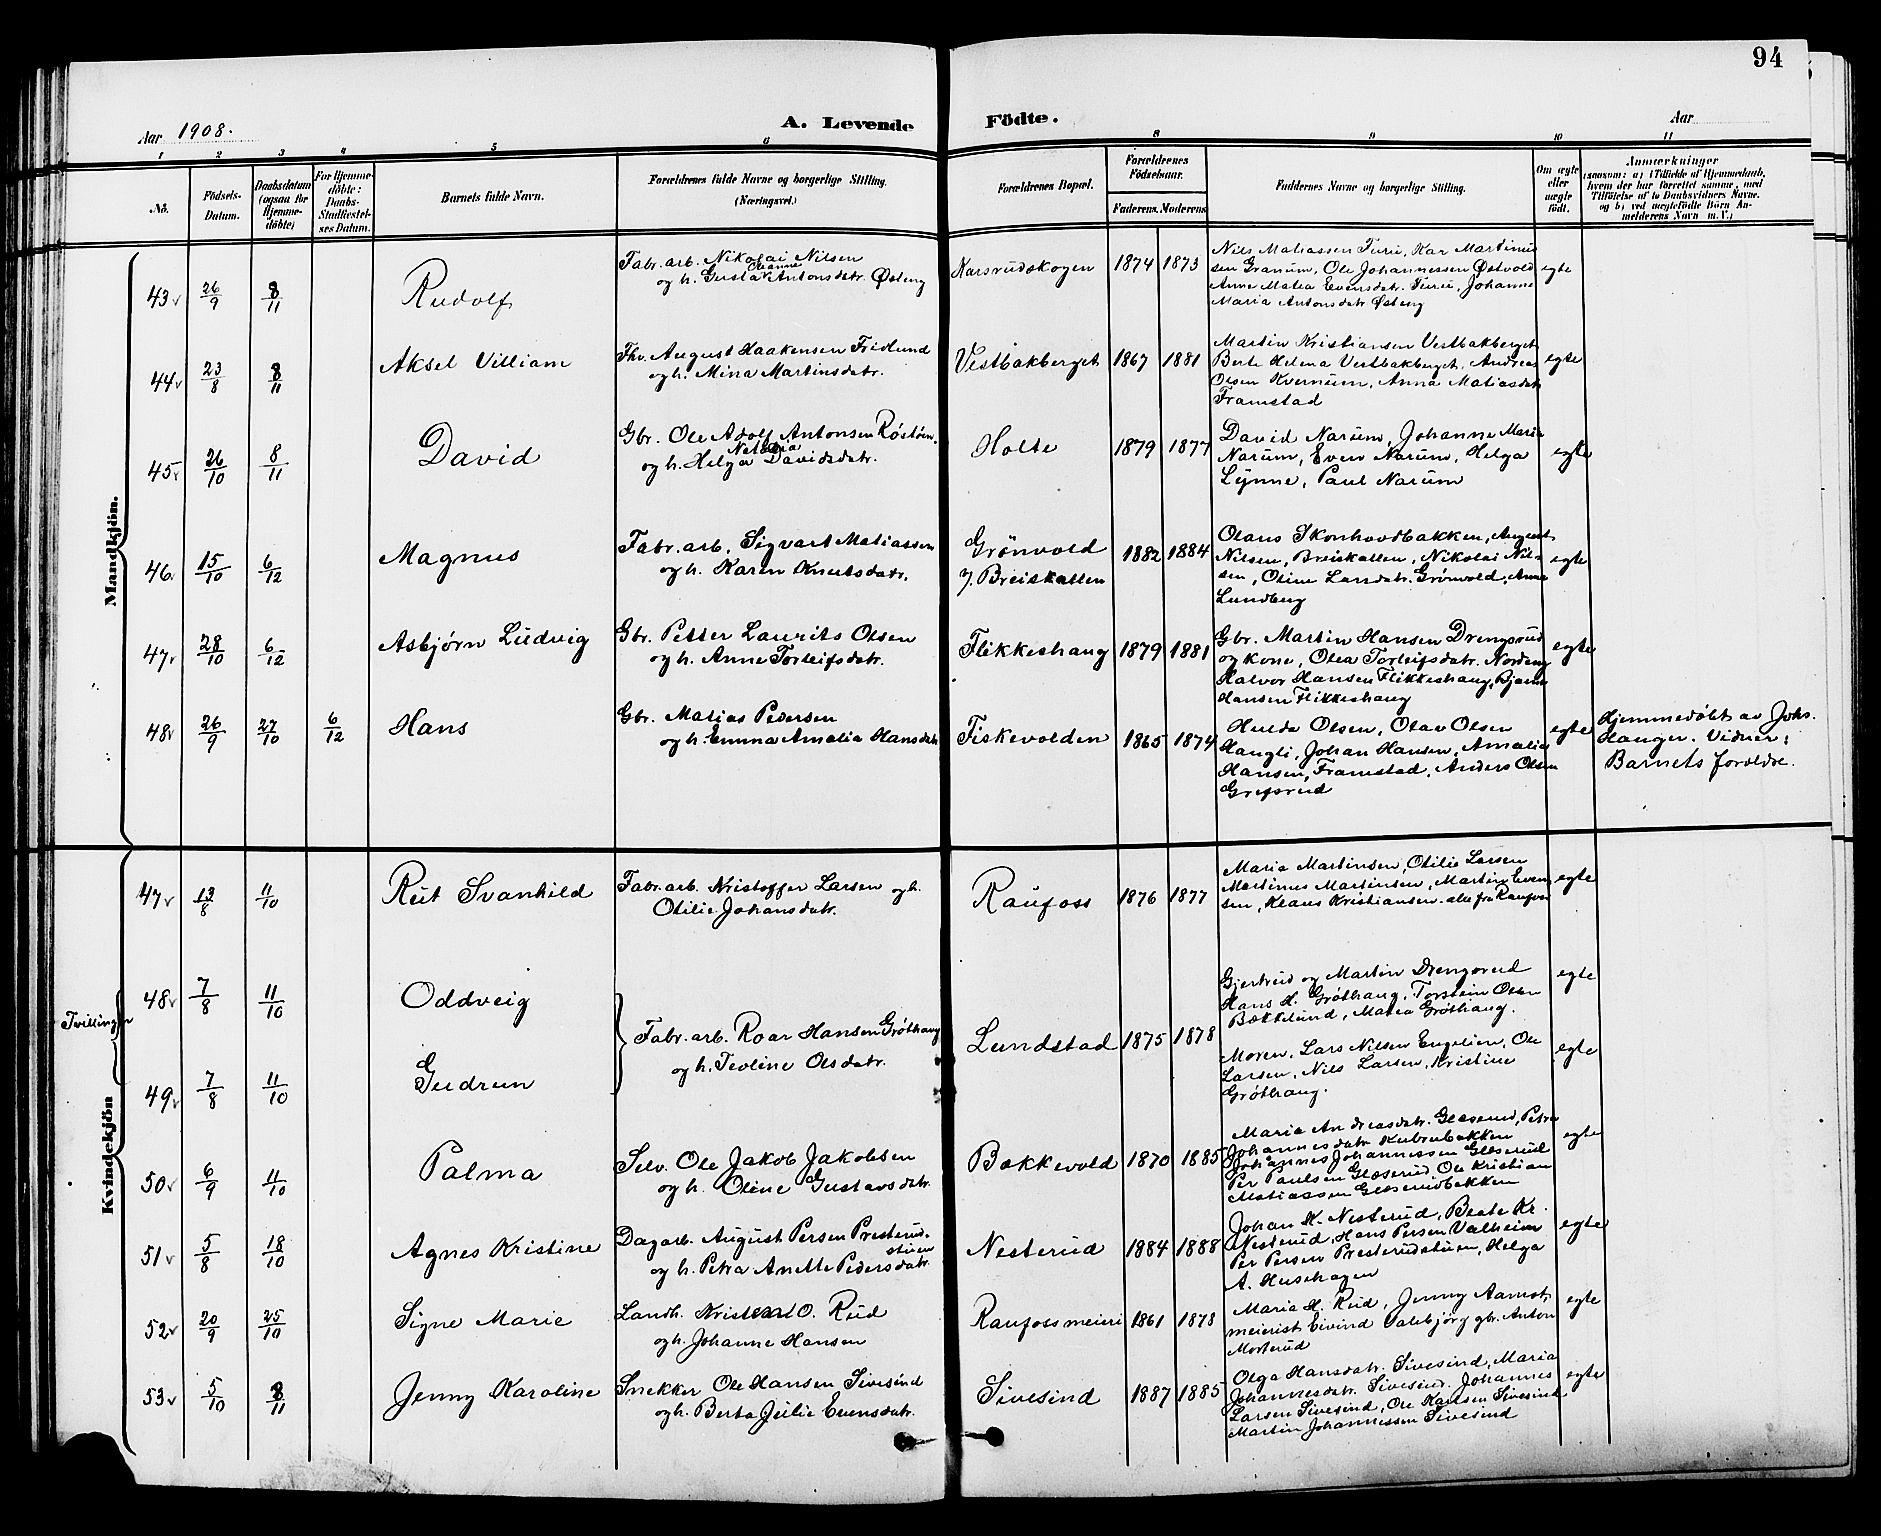 94
Aar 1908.
A. Levende Födte.
Aar
1 2 3 4 5 6 8 9 10 11
No.
Födsels-Datum.
Daabsdatum (ogsaa for Hjemmedöbte)
For Hjemmedöbte: Daabs-Stadfæstelses Datum.
Barnets fulde Navn.
Forældrenes fulde Navne og borgerlige Stilling. (Næringsvei.)
Forældrenes Bopæl.
Forældrenes Födselsaar.
Faderens. Moderens
Faddernes Navne og borgerlige Stilling.
Om ægte eller uægte födt.
Anmærkninger
(saasom: a) i Tilfælde af Hjemmedaab, hvem der har forrettet samme, med Tilföielse af to Daabsvidners Navne. og b) ved uægtefödte Börn Anmelderens Navn m. V.)
Mandkjön.
43 26/9 8/11 Rudolf
Fabr. arb. Nikolai Nilsen
og h. Gusta Oleanna Antonsdatr. Østeng
Karsrudskogen 1874 1873
Nils Matiassen Turi, Kar Martinus
sen Granum, Ole Johannessen Østvold
Anne Matea Evensdatr. Turi, Johanne
Maria Antonsdatr Østeng
egte
44 23/8 8/11 Aksel Villiam
Fhv. August Haakensen Fridlund
og h. Mina Martinsdatr.
Vestbakberget 1867 1881
Martin Kristiansen Vestbakberget
Berte Helena Vestbakberget, Andreas
Olsen Kvernum, Anna Matiasdatr
Framstad
egte
45 26/10 8/11 David
Gbr. Ole Adolf Antonsen Røstøen.
og h. Helga Natalia Davidsdatr.
Holte 1879 1877
David Narum, Johanne Marie
Narum, Even Narum, Helga
Lynne, Paul Narum
egte
46 15/10 6/12 Magnus
Fabr. arb. Sigvart Matiassen
og h. Karen Knutsdatr.
Grönvold
7. Breiskallen 1882 1884
Olaus Skonhovdbakken, August
Nilsen, Breiskallen, Nikolai Nil-
sen, Oline Larsdatr. Grønvold, Anne
Lundberg
egte
47 28/10 6/12 Asbjørn Ludvig
Gbr. Petter Laurits Olsen
og h. Anne Torleifsdatr.
Flikkeshaug 1879 1881
Gbr. Martin Hansen Drengsrud
og kone, Olea Torleifsdatr. Nordeng
Halvor Hansen Flikkeshaug, Bjarne
Hansen Flikkeshaug
egte
48 26/9 27/10 6/12 Hans
Gbr. Matias Pedersen
og h. Emma Amalia Hansdatr
Fiskevolden 1865 1874
Hulda Olsen, Olav Olsen
Haugli, Johan Hansen, Amalie
Hansen, Framstad, Anders Olsen
Grefsrud
egte
Hjemmedøbt av Johs.
Hanger. Vidner:
Barnets forældre.
Kvindekjön
47 13/8 11/10 Rut Svanhild
Fabr. arb. Kristoffer Larsen og h.
Otilie Johansdatr.
Raufoss 1876 1877
Maria Martinsen, Otilie Larsen
Martinus Martinsen, Martin Even
sen, Klaus Kristiansen. alle fra Raufoss
egte
Tvillinger
48 7/8 11/10 Oddveig
Gjertrud og Martin Drengsrud
Hans H. Grøthaug, Torstein Olsen
Bækkelund, Matea Grøthaug.
egte
Fabr. arb. Roar Hansen Grøthaug
og h. Teoline Olsdatr.
Lundstad 1875 1878
49 7/8 11/10 Gudrun
Moren, Lars Nilsen Engelien, Ole
Larsen, Nils Larsen, Kristine
Grøthaug.
egte
50 6/9 11/10 Palma
Selv. Ole Jakob Jakobsen
og h. Oline Gustavsdatr.
Bækkevold 1870 1885
Maria Andreasdatr. Glæserud, Petra
Johannesdatr Kubrubakken
Johannes Johannessen Glæserud
Per Paulsen Glæserud, Ole Kristian
Matiassen Glæserudbakken
egte
51 5/8 18/10 Agnes Kristine
Dagarb. August Persen Presterud-
stuen
og h. Petra Anette Pedersdatr.
Nesterud 1884 1888
Johan K. Nesterud, Beate Kr.
Nesterud, Hans Persen Valheim
Per Persen Presterudstuen, Helga
A. Hushagen
egte
52 20/9 25/10 Signe Marie
Landh. Kristian O. Rud
og h. Johanne Hansen
Raufoss meieri 1861 1878
Maria H. Rud, Jenny Aamot,
meierist Eivind Dalebjörg gbr. Anton
Morterud
egte
53 5/10 8/11 Jenny Karoline
Snekker Ole Hansen Sivesind
og h. Berta Julie Evensdatr.
Sivesind 1887 1885
Olga Hansdatr. Sivesind, Maria
Johannesdatr. Sivesind. Johannes
Larsen Sivesind, Ole Karlsen Sivesind
Martin Johannessen Sivesind
egte